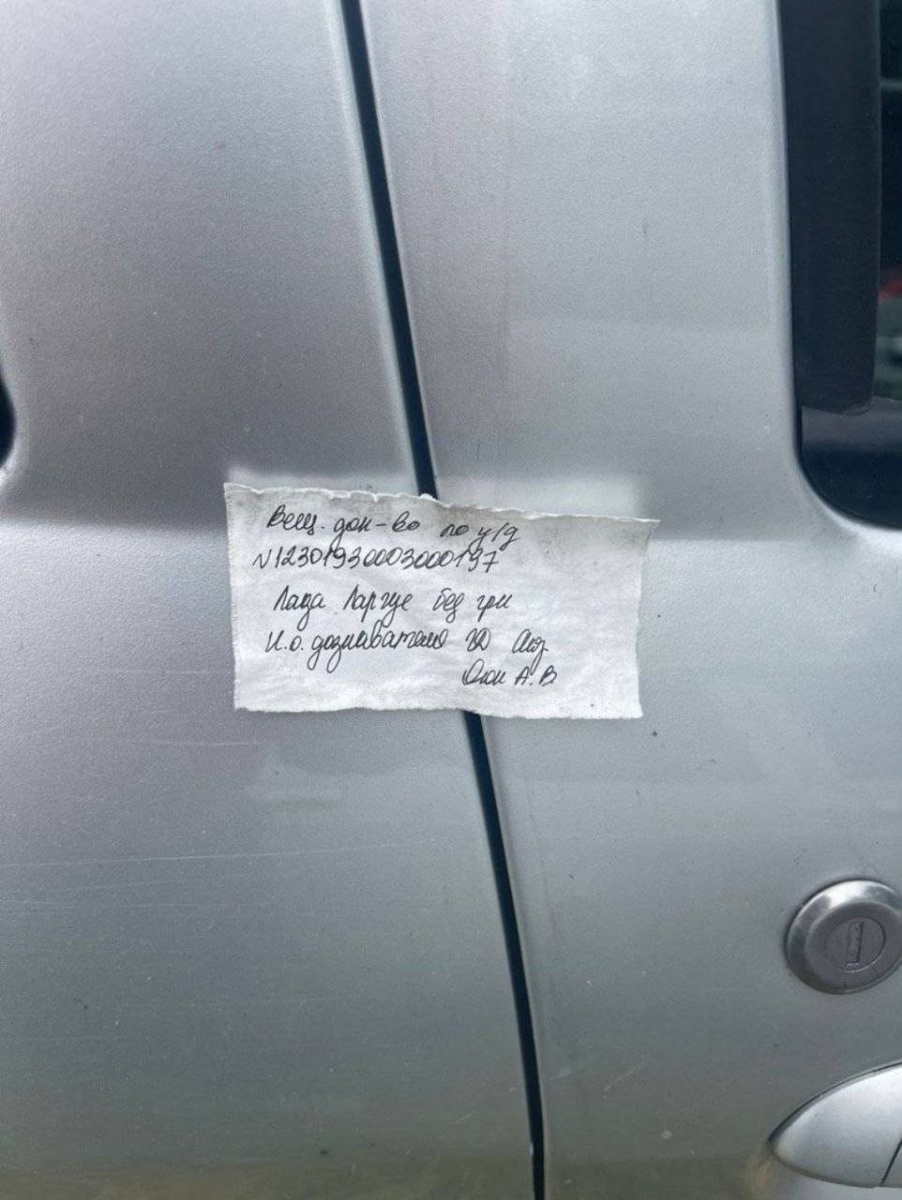 Вещ. док-во по у/д
N12301930003000197
Лада Ларгус без грн
И.о. дознавателя
А.В